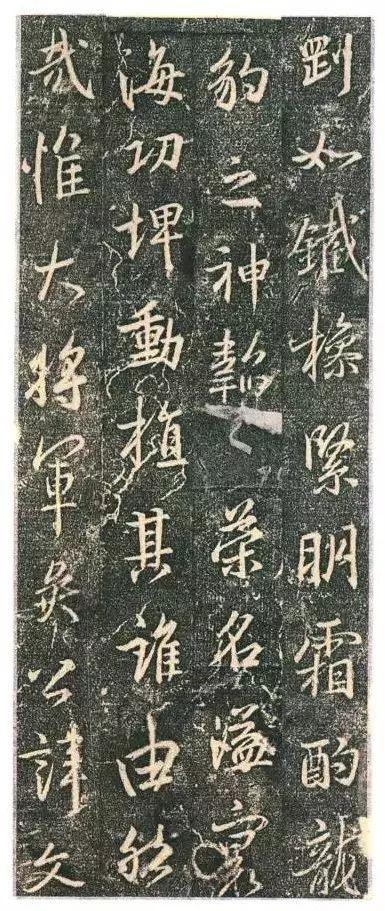 剛如鐵操緊明霜酌龍
豹之神韜榮名溢寰
海功埤動植其誰由然
哉惟大將軍吳公諱文